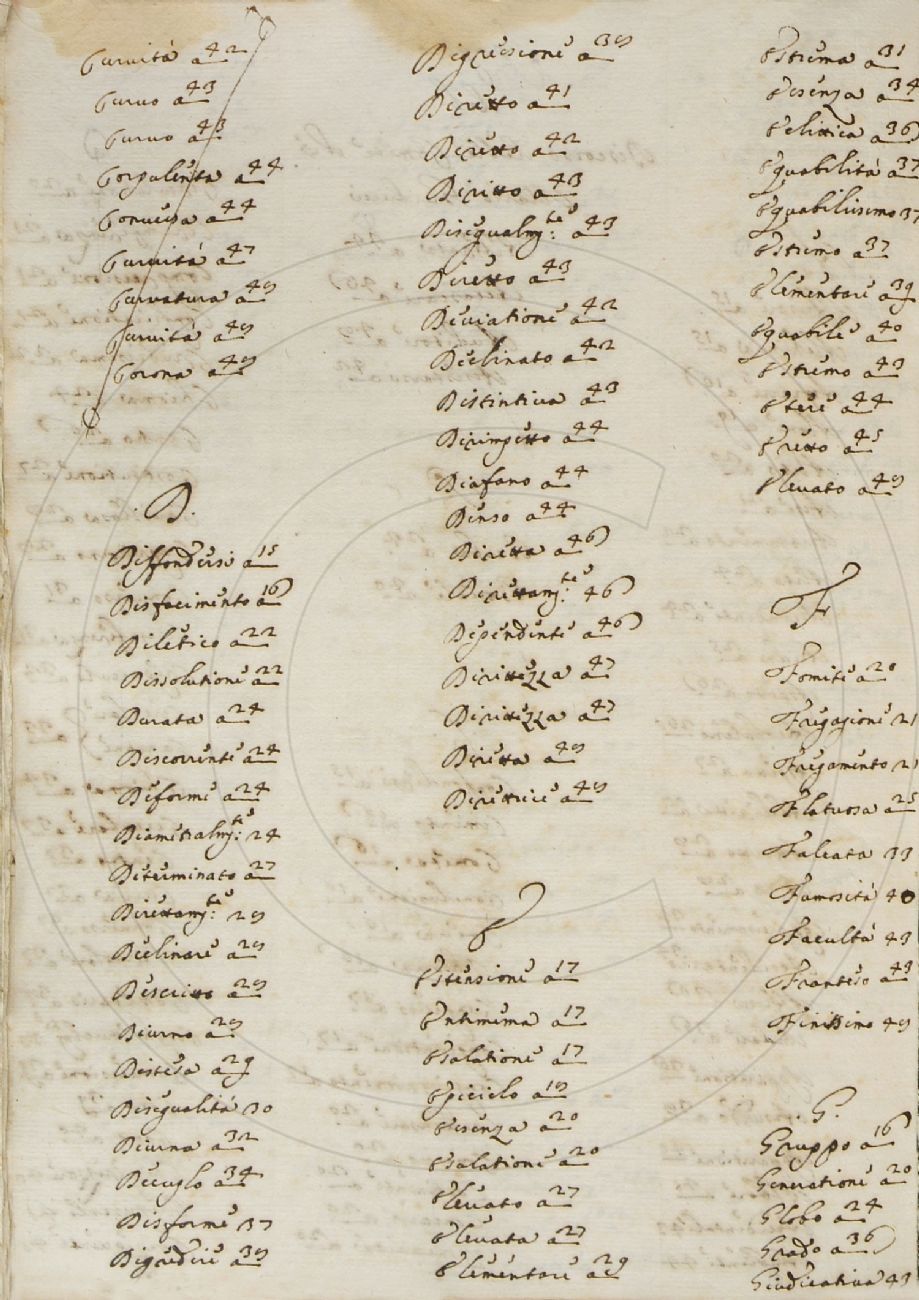 Curuità a 42
Curuo a 43
Curuo a 43
Corpulenta a 44
Conuessa a 44
Curuità a 47
Curvatura a 49
Curuità a 49
Corona a 49
.D.
Diffondersi a 15
Disfacimento a 16
Diletico a 22
Dissolutione a 22
Durata a 24
Discorrente a 24
Deforme a 24
Diametralmte: 24
Determinato a 27
Direttamte: 29
Declinare a 29
Descritto a 29
Diurno a 29
Distesa a 29
Disegualità 30
Diurna a 32
Disforme 37
Digredire a 39
Digressione a 39
Diretto a 41
Diretto a 42
Diritto a 43
Disegualmte: a 43
Diretto a 43
Deuiatione a 42
Declinato a 42
Distintiua a 43
Dirimpetto a 44
Diafano a 44
Denso a 44
Diretta a 46
Direttamte: 46
Dependente a 46
Dirittezza a 47
Dirittezza a 47
Diretta a 49
Direttrice a 49
E
Estensione a 17
Entimema a 17
Esalatione a 17
Epiciclo a 19
Essenza a 20
Esalatione a 20
Eleuato a 27
Eleuata a 27
Elementare a 29
Estrema a 31
Essenza a 34
Eclittica a 36
Equabilità a 37
Equabilissimo 37
Estremo a 37
Elementare a 39
Equabile a 40
Estremo a 43
Etere a 44
Eretto a 45
Eleuato a 49
F
Fomite a 20
Fregagione 21
Fregamento 21
Flatuosa a 25
Falcata 33
Famosità 40
Facultà 43
Franteso a 43
Finissimo 49
.G.
Gruppo a 16
Generatione a 20
Globo a 24
Grado a 36
Giudicatiua 43